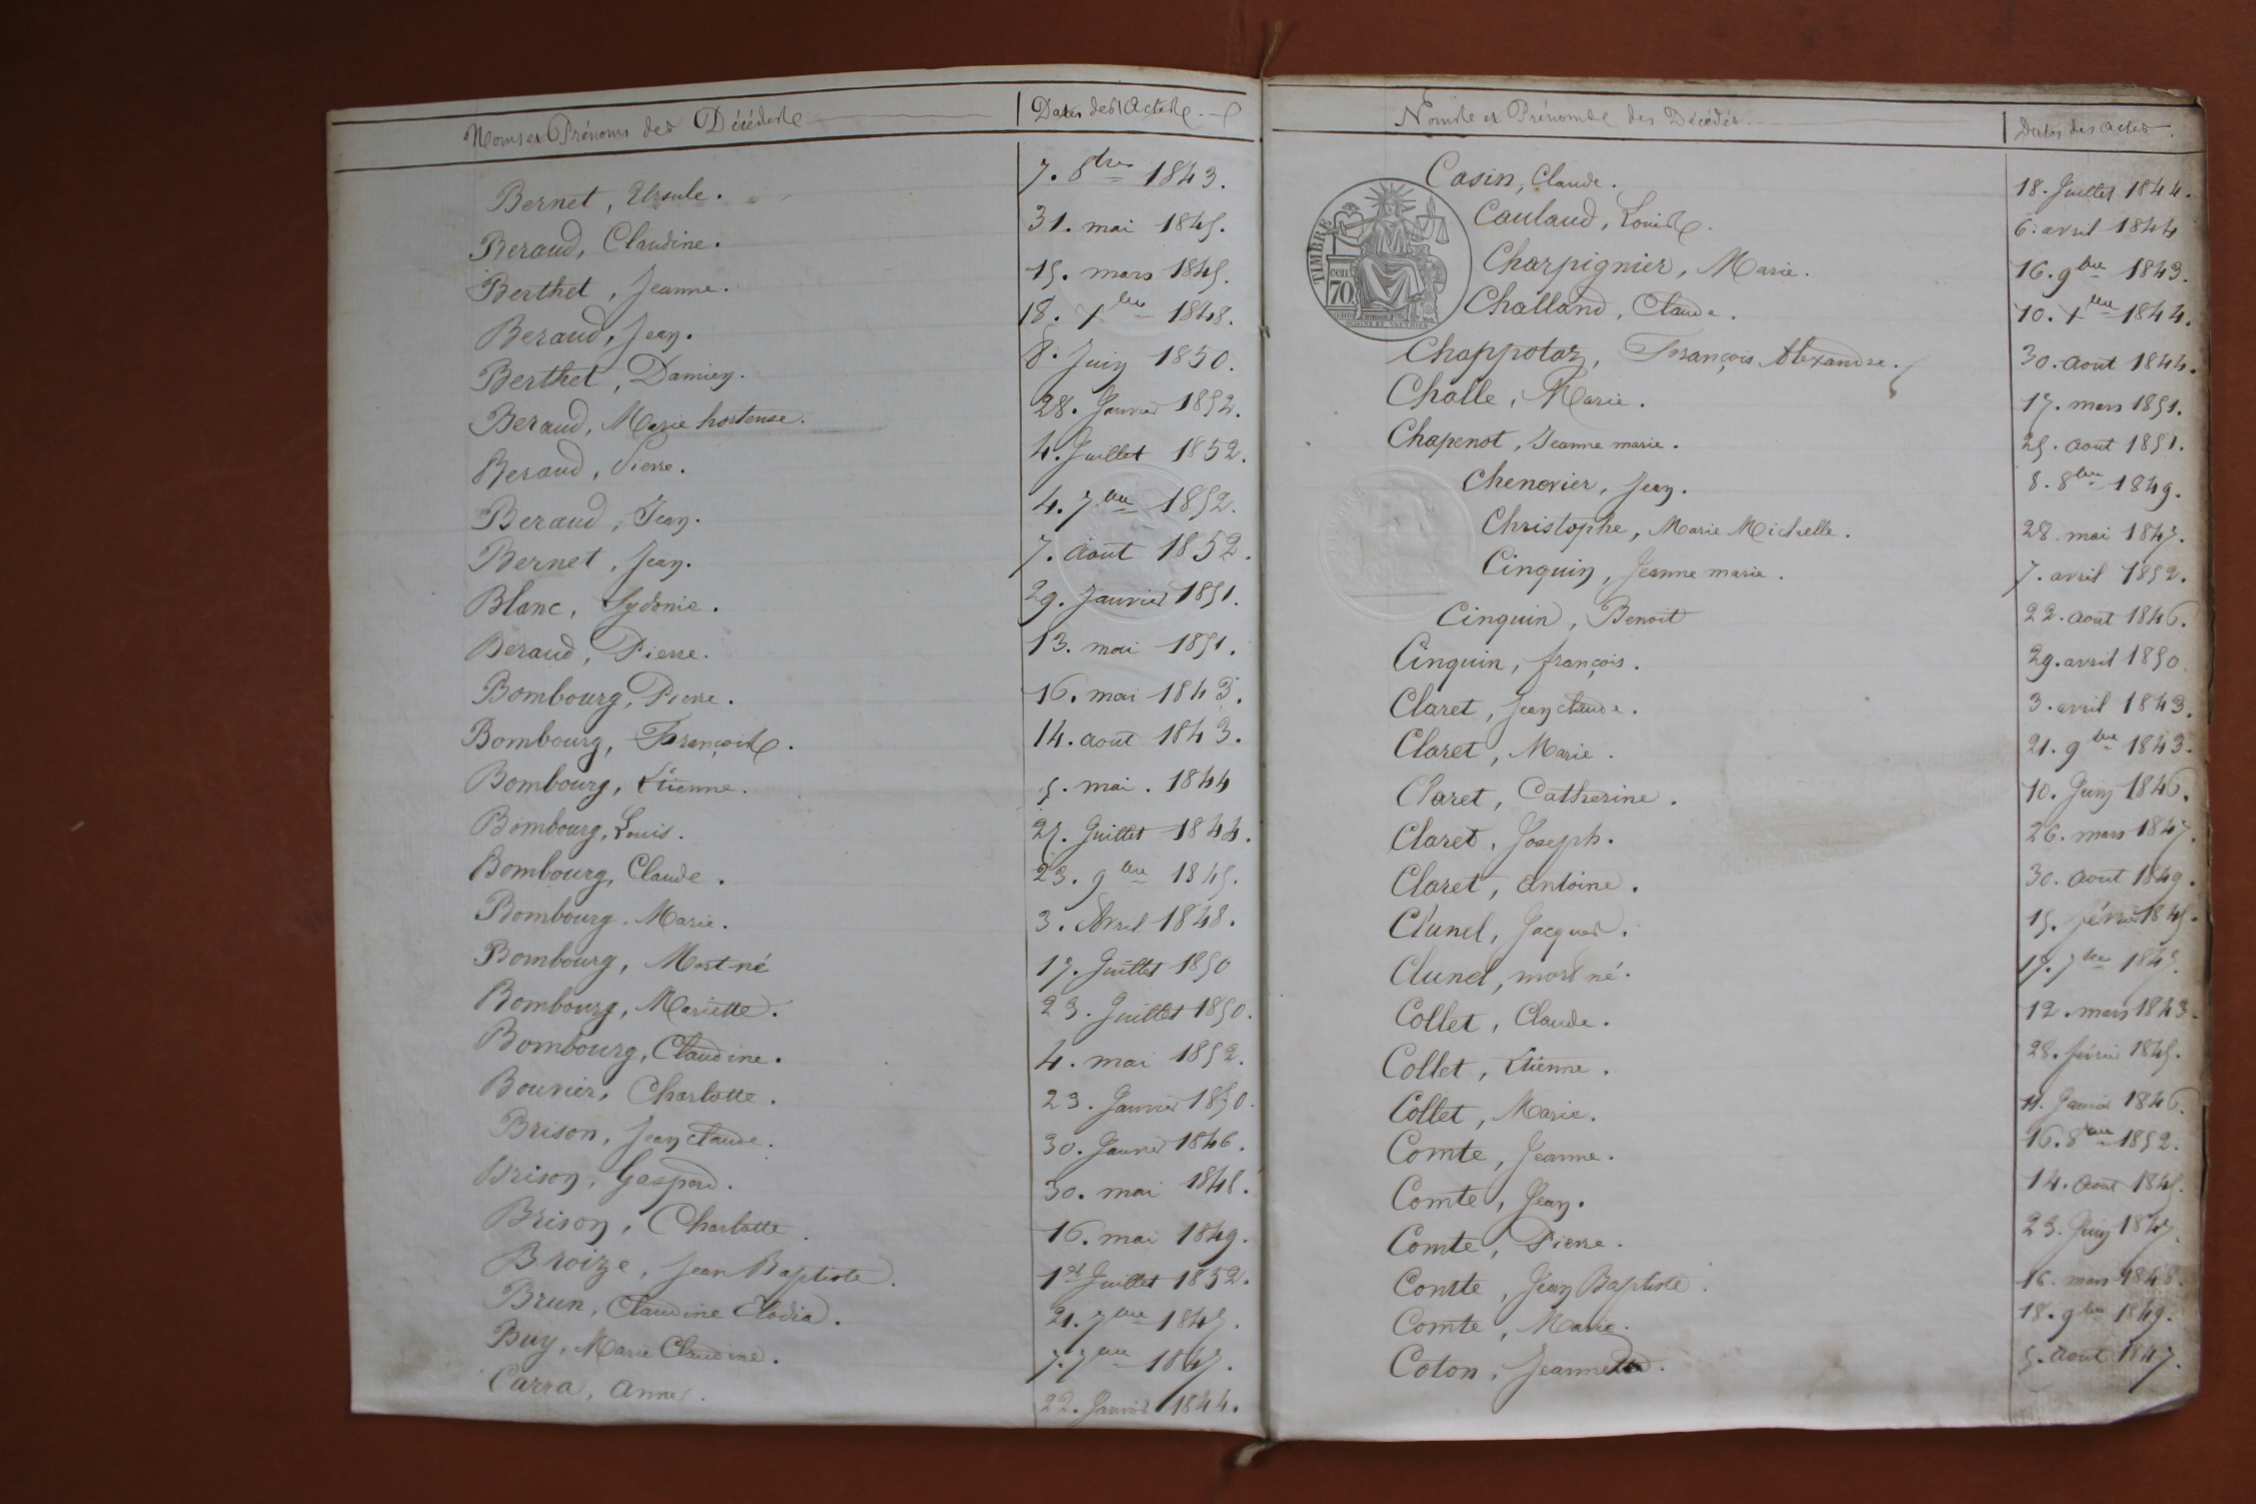 Noms et Prénoms des Décédés Dates des Actes.
Bernet, Ursule. 7. 8bre 1843.
Beraud, Claudine. 31. mai 1845.
Berthet, Jeanne. 15. mars 1845.
Beraud, Jean. 18. Xbre 1848.
Berthet, Damien. 8. Juin 1850.
Beraud, Marie hortense. 28. Janvier 1852.
Beraud, Pierre. 4. Juillet 1852.
Beraud, Jean. 4. 7bre 1852.
Bernet, Jean. 7. Août 1852.
Blanc, Sydonie. 29. Janvier 1851.
Beraud, Pierre. 13. mai 1851.
Bombourg, Pierre. 16. mai 1843.
Bombourg, François. 14. août 1843.
Bombourg, Etienne. 5. mai. 1844
Bombourg, Louis. 25. Juillet 1844.
Bombourg, Claude. 23. 9bre 1845.
Bombourg. Marie. 3. Avril 1848.
Bombourg, Mort-né 17. Juillet 1850
Bombourg, Mariette. 23. Juillet 1850.
Bombourg, Claudine. 4. mai 1852.
Bouvier, Charlotte. 23. Janvier 1850.
Brison, Jean claude. 30. Janvier 1846.
Brison, Gaspard. 30. mai 1848.
Brison, Charlotte. 16. mai 1849.
Broize, Jean Baptiste. 1er Juillet 1852.
Brun, Claudine Elodia. 21. 7bre 1847.
Buy, Marie Claudine. 7. 7bre 1847.
Carra, anne. 22. Janvier 1844.
Noms et Prénoms des Décédés. Dates des actes.
Casin, Claude. 18. Juillet 1844.
TIMBRE
70
Caulaud, Louis. 6. avril 1844
Charpignier, Marie. 16. 9bre 1843.
Challand, Claude. 10. Xbre 1844.
Chappotaz, François Alexandre. 30. août 1844.
Challe, Marie. 17. mars 1851.
Chapenot, Jeanne marie. 25. août 1851.
Chenovier, Jean. 8. 8bre 1849.
Christophe, Marie Michelle. 28. mai 1847.
Cinquin, Jeanne marie. 7. avril 1852.
Cinquin, Benoit 22. août 1846.
Cinquin, françois. 29. avril 1850.
Claret, Jean claude. 3. avril 1843.
Claret, Marie. 21. 9bre 1843.
Claret, Catherine. 10. Juin 1846.
Claret, Joseph. 26. mars 1847.
Claret, antoine. 30. août 1849.
Clunel, Jacques. 15. février 1845.
Clunel, mort né. 17. 7bre 1847.
Collet, Claude. 12. mars 1843.
Collet, Etienne. 28. février 1845.
Collet, Marie. 11. Janvier 1846.
Comte, Jeanne. 16. 8bre 1852.
Comte, Jean. 14. août 1845.
Comte, Pierre. 23. Juin 1847.
Comte, Jean Baptiste. 16. mars 1848.
Comte, Marie. 18. 9bre 1849.
Coton, Jeannette. 5. août 1847.